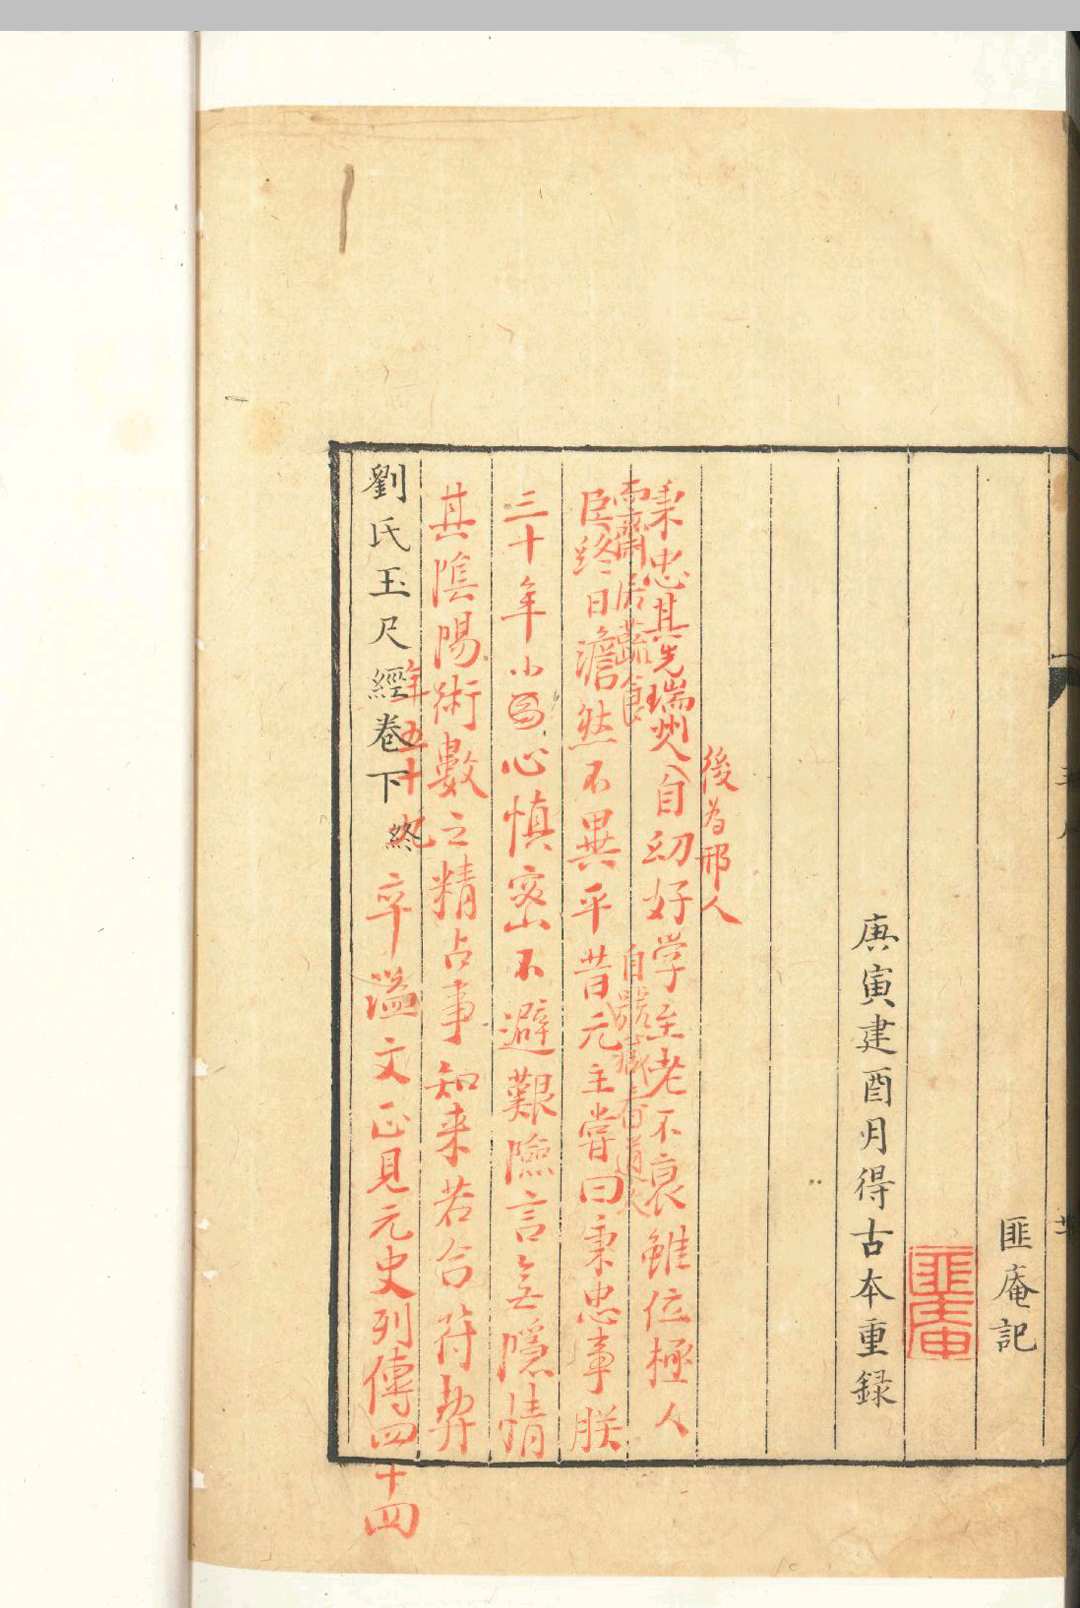 匪庵記
匪庵
庚寅建酉月得古本重録
後為邢人
秉忠其先瑞州人自幼好学至老不衰雖位極人
而齋居蔬食
自號藏春道人
臣終日澹然不異平昔元主嘗曰秉忠事朕
三十年小心慎密不避艱險言無隱情
其陰陽術數之精占事知来若合符契
年五十九
卒謚文正見元史列傳四十四
劉氏玉尺經卷下終